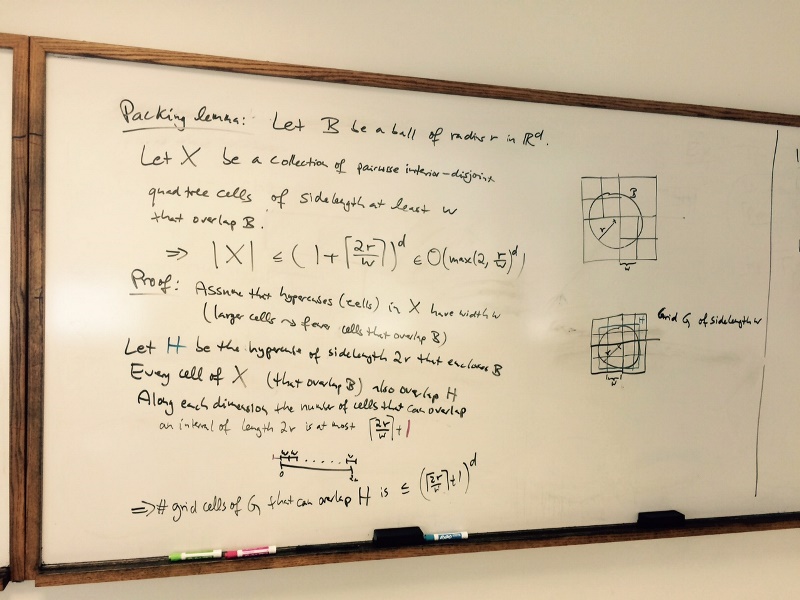 Packing lemma: Let B be a ball of radius r in ℝᵈ.
Let X be a collection of pairwise interior-disjoint
quadtree cells of sidelength at least w
that overlap B.
⇒ |X| ≤ (1+⌈2r/w⌉)ᵈ ∈ O(max(2, r/w)ᵈ)
Proof: Assume that hypercubes (cells) in X have width w
(larger cells ⇝ fewer cells that overlap B)
Let H be the hypercube of sidelength 2r that encloses B
Every cell of X (that overlap B) also overlap H
Along each dimension the number of cells that can overlap
an interval of length 2r is at most ⌈2r/w⌉+1
w w
0 2r
⇒ # grid cells of G that can overlap H is ≤ (⌈2r/w⌉+1)ᵈ
B
r
w
Grid G of sidelength w
H
r
w